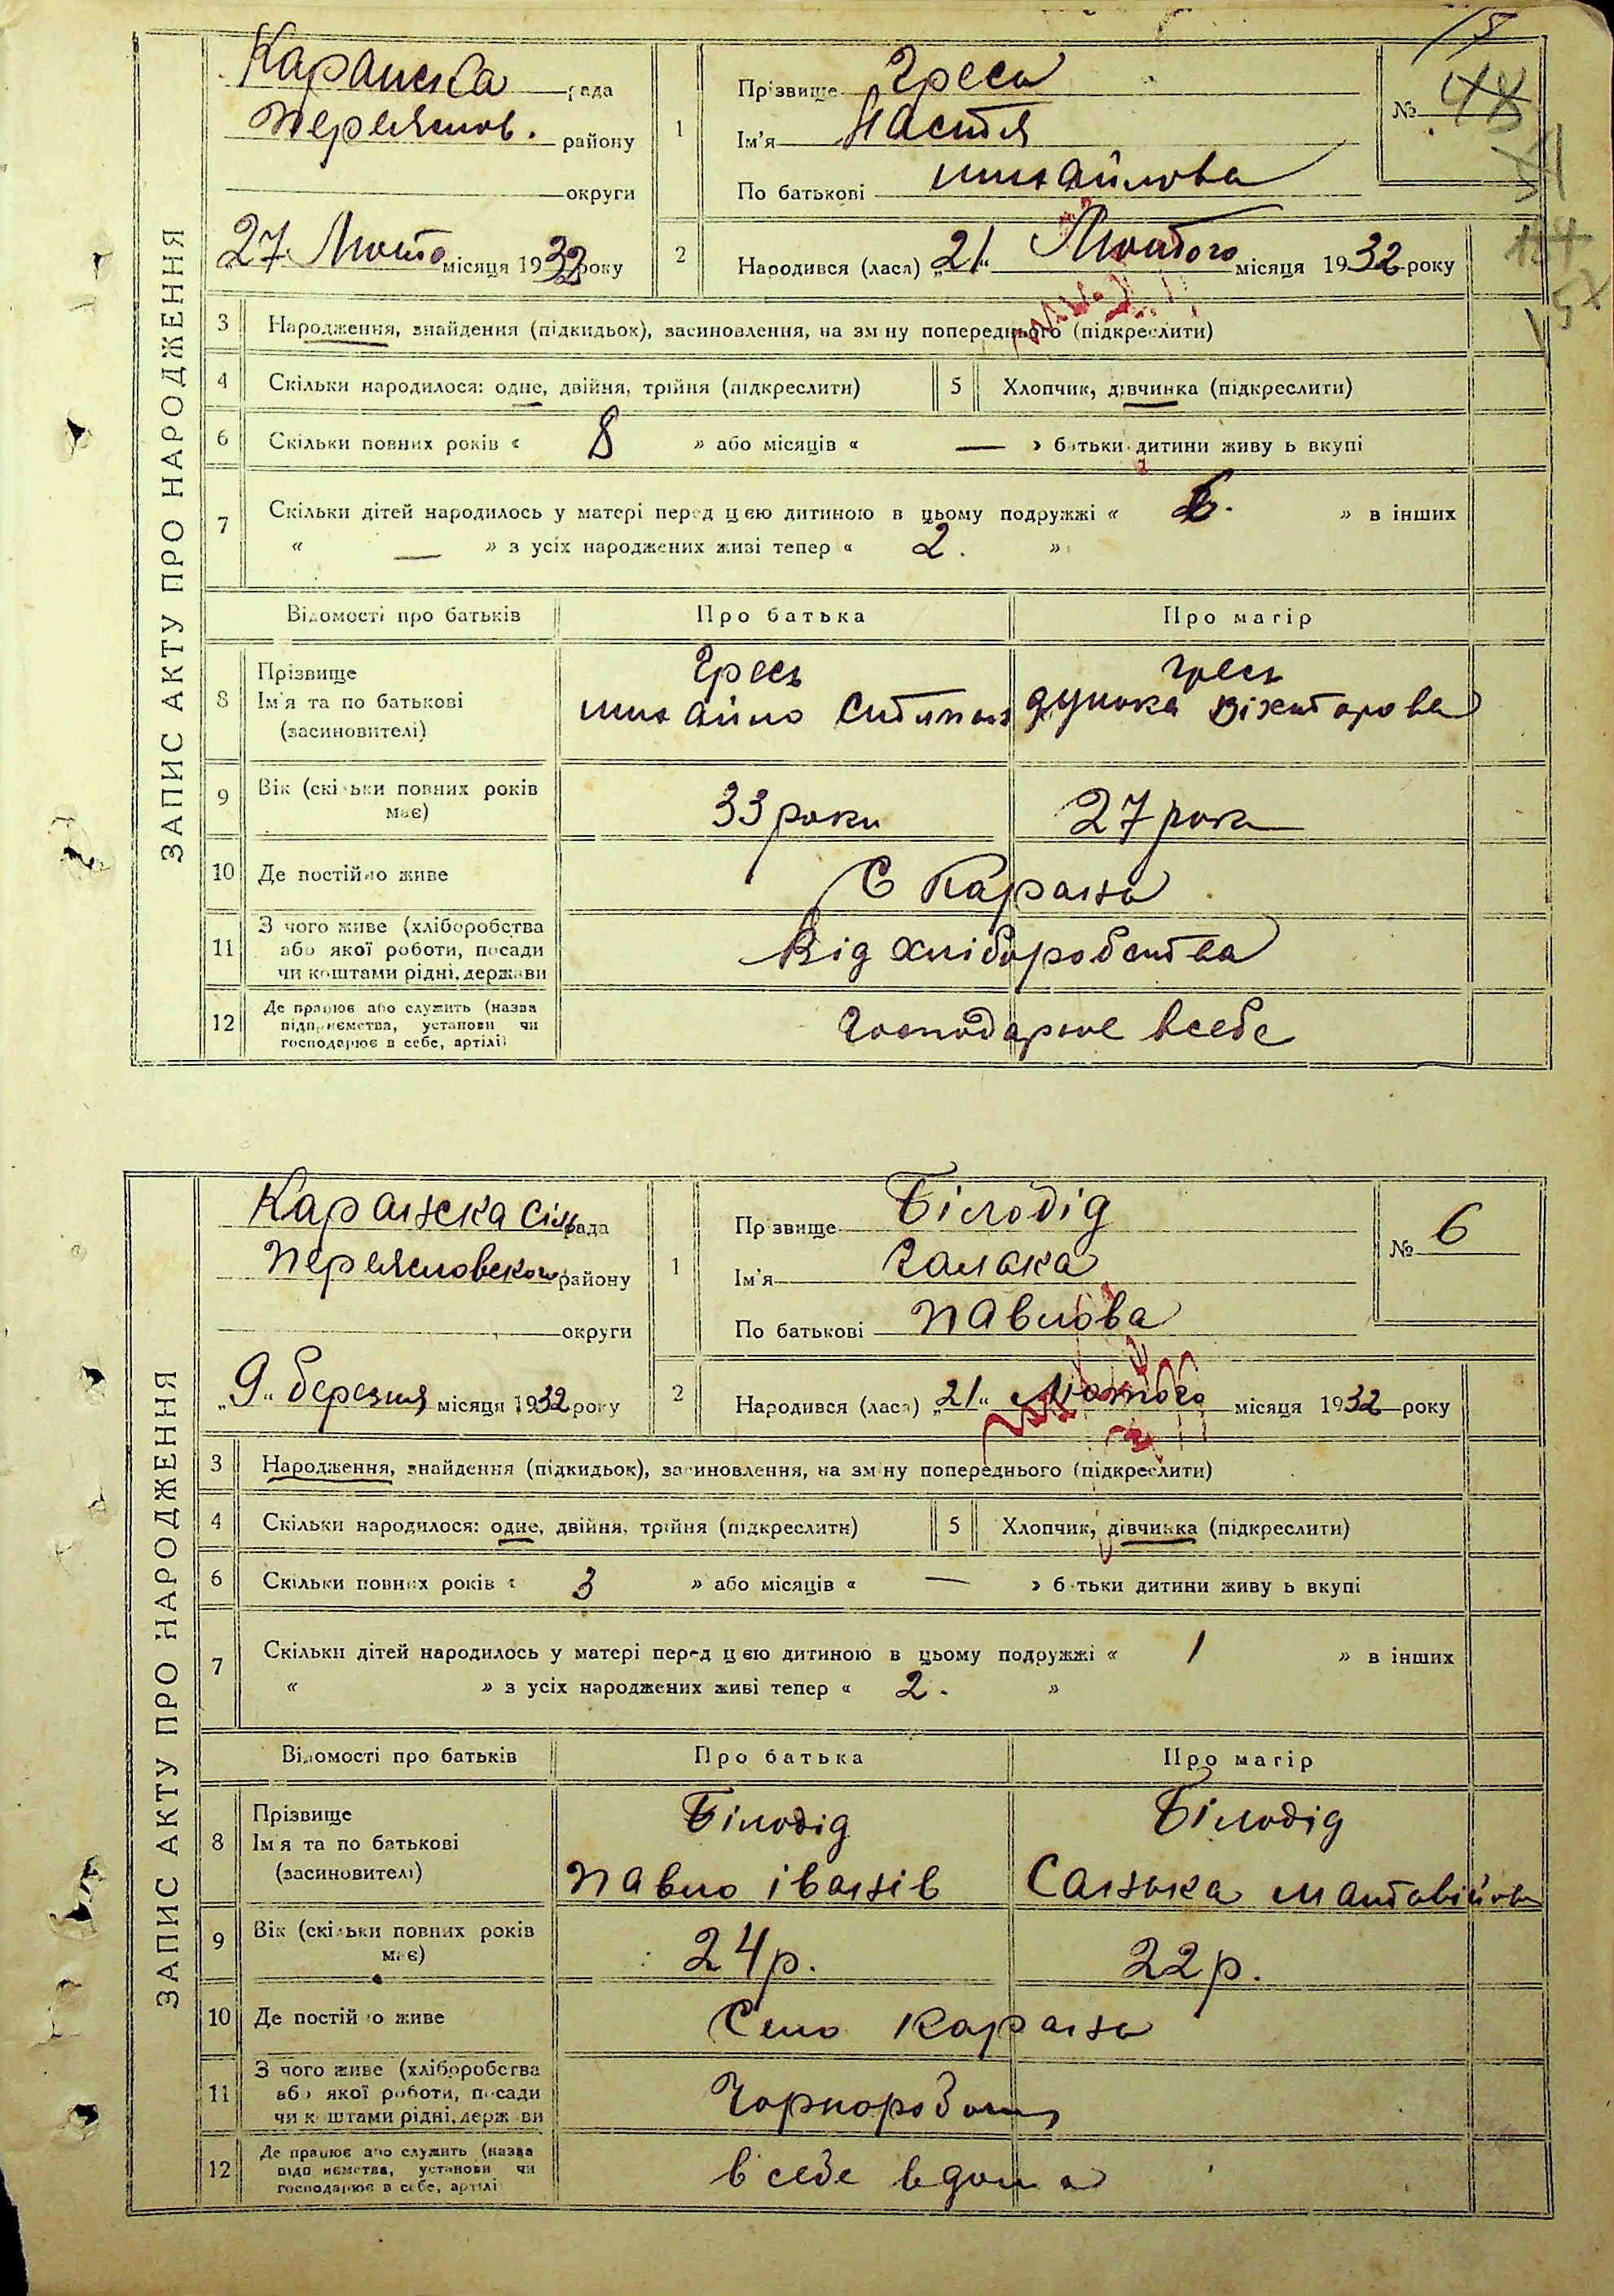 ЗАПИС АКТУ ПРО НАРОДЖЕННЯ
Каранська рада
Переяслов. району
округи
„27 Лютого місяця 1932 року
1
Прізвище Гресь
Ім'я Настя
По батькові михайлова
№
2
Народився (лася) „21“ Лютого місяця 1932 року
3 Народження, знайдення (підкидьок), засиновлення, на зміну попереднього (підкреслити)
4 Скільки народилося: одне, двійня, трійня (підкреслити)
5 Хлопчик, дівчинка (підкреслити)
6 Скільки повних років « 8 » або місяців « — » батьки дитини живуть вкупі
7 Скільки дітей народилось у матері перед цією дитиною в цьому подружжі « » в інших
« — » з усіх народжених живі тепер « 2. »
Відомості про батьків Про батька Про матір
8 Прізвище
Ім'я та по батькові
(засиновителі)
Гресь
михайло
гресь
дунька Вікторова
9 Вік (скільки повних років має)
33 роки 27 рок
10 Де постійно живе
С Карань
11 З чого живе (хліборобства
або якої роботи, посади
чи коштами рідні, держави
Від хліборобства
12 Де працює або служить (назва
підприємства, установи чи
господарює в себе, артілі)
Господарює всебе
ЗАПИС АКТУ ПРО НАРОДЖЕННЯ
Каранська сільрада
Переясловського району
округи
„9“ березня місяця 1932 року
1
Прізвище Білодід
Ім'я Галька
По батькові павлова
№ 6
2
Народився (лася) „21“ Лютого місяця 1932 року
3 Народження, знайдення (підкидьок), засиновлення, на зміну попереднього (підкреслити)
4 Скільки народилося: одне, двійня, трійня (підкреслити)
5 Хлопчик, дівчинка (підкреслити)
6 Скільки повних років « 3 » або місяців « — » батьки дитини живуть вкупі
7 Скільки дітей народилось у матері перед цією дитиною в цьому подружжі « 1 » в інших
« » з усіх народжених живі тепер « 2. »
Відомості про батьків Про батька Про матір
8 Прізвище
Ім'я та по батькові
(засиновителі)
Білодід
павло іванів
Білодід
Санька матвійовна
9 Вік (скільки повних років має)
24 р. 22 р.
10 Де постійно живе
Село Карань
11 З чого живе (хліборобства
або якої роботи, посади
чи коштами рідні, держави
Чорнороб
12 Де працює або служить (назва
підприємства, установи чи
господарює в себе, артілі
в себе вдома